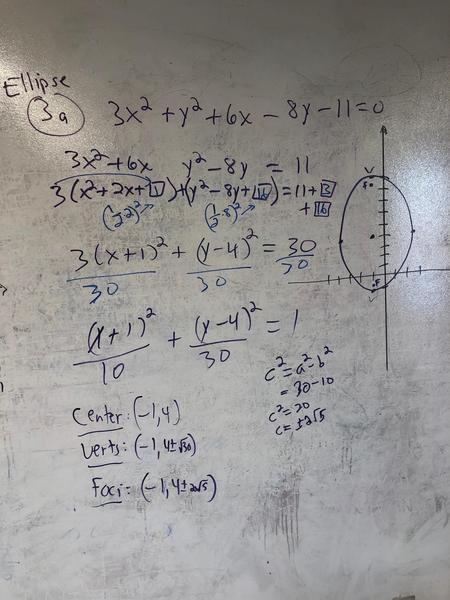 Ellipse
3a 3x² + y² + 6x - 8y - 11 = 0
3x² + 6x y² - 8y = 11
3(x² + 2x + 1) + (y² - 8y + 16) = 11 + 3
+ 16
(½·2)² (½·8)²
3(x+1)²/30 + (y-4)²/30 = 30/30
(x+1)²/10 + (y-4)²/30 = 1
c² = a² - b²
= 30 - 10
c² = 20
c = ±2√5
Center: (-1, 4)
Verts: (-1, 4±√30)
Foci: (-1, 4±2√5)
V
F
F
V